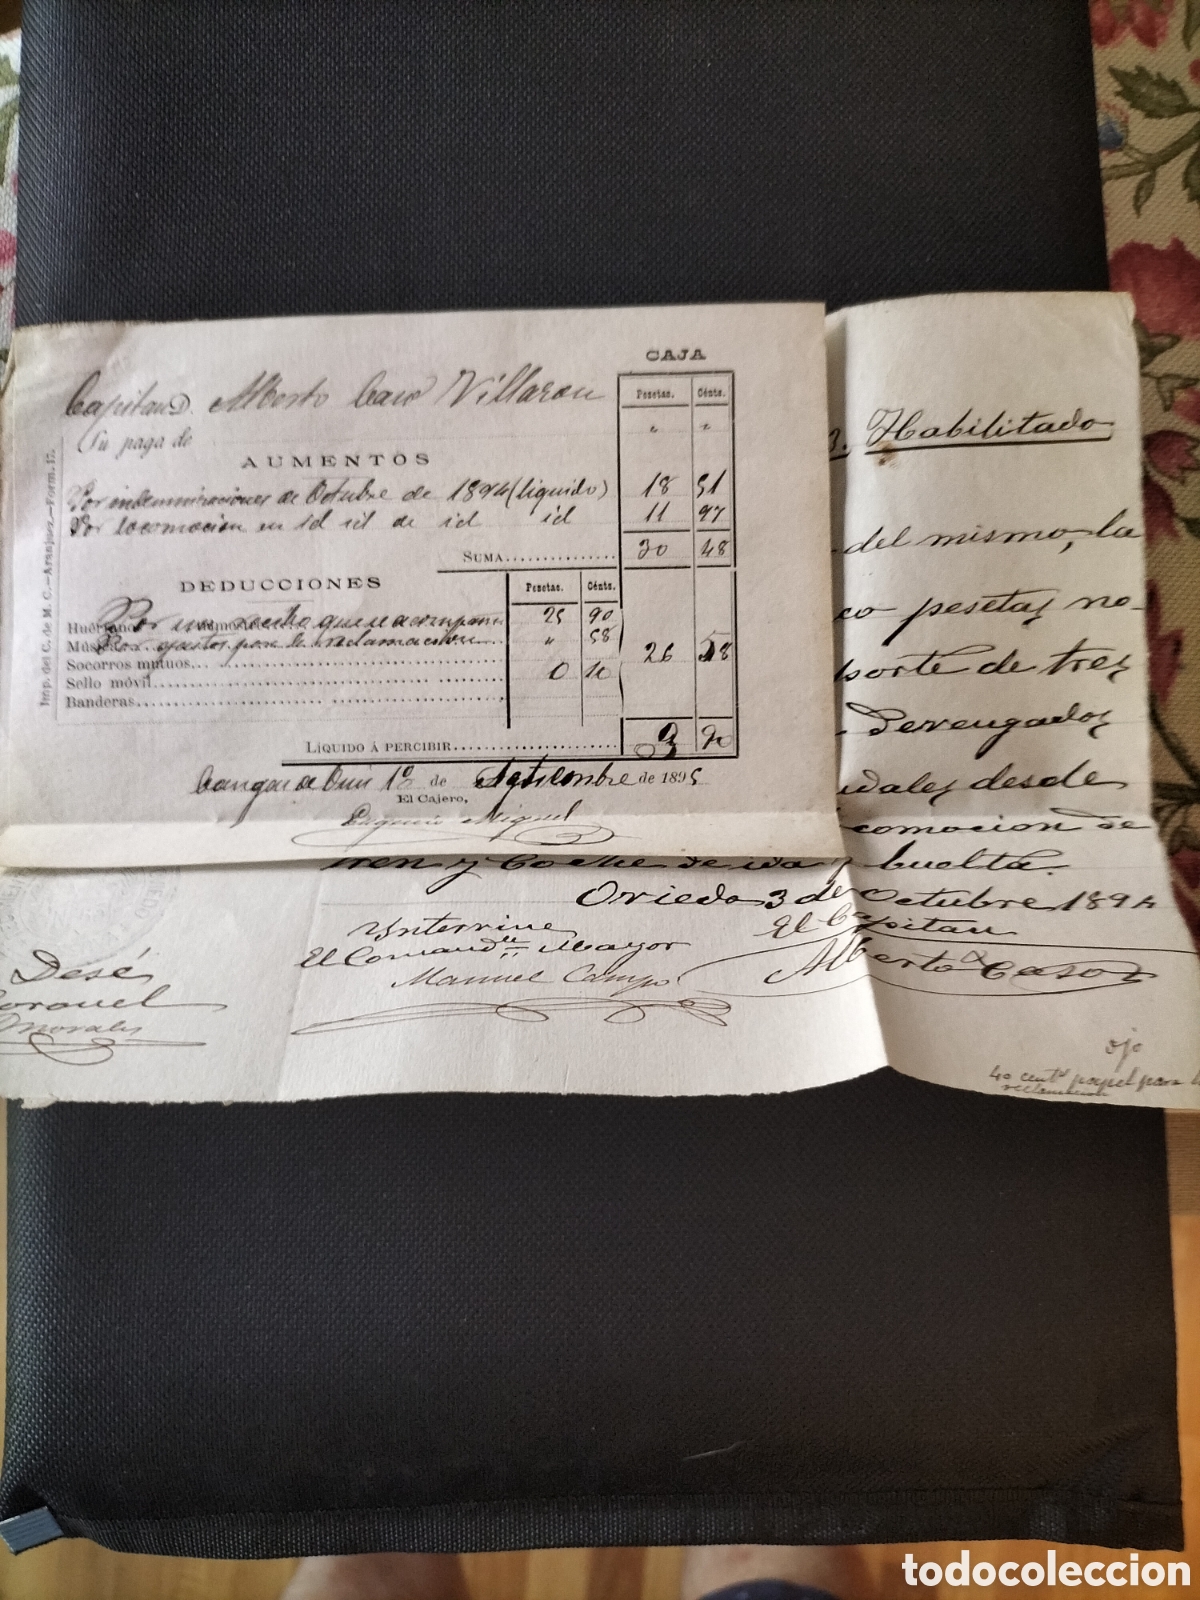 CAJA
Capitan D. Alberto Caso Villazon
Pesetas. Cénts.
Su paga de " "
AUMENTOS
Por indemnizaciones de Octubre de 1894 (liquido) 18 51
Por locomocion en id id de id id 11 97
SUMA 30 48
DEDUCCIONES
Pesetas. Cénts.
Por un recibo que se acompaña 25 90
Por gastos por la reclamacion " 58
Socorros mutuos
26 58
Sello móvil 0 10
Banderas
LÍQUIDO Á PERCIBIR 3 90
Cangas de Onis 1º de Septiembre de 1895
El Cajero,
Eugenio Miguel
Imp. del C. de M. C.—Aranjuez.—Form. 17.
Habilitado
del mismo, la
co pesetas no-
porte de tres
Devengados
desde
comocion de
tren y coche de ida y buelta.
Oviedo 3 de Octubre 1894
Ynterino
El Comandte Mayor
Manuel Campo
El Capitan
Alberto Caso
Desé
Coronel
Morales
ojo
40 cents papel para
reclamacion
todocoleccion